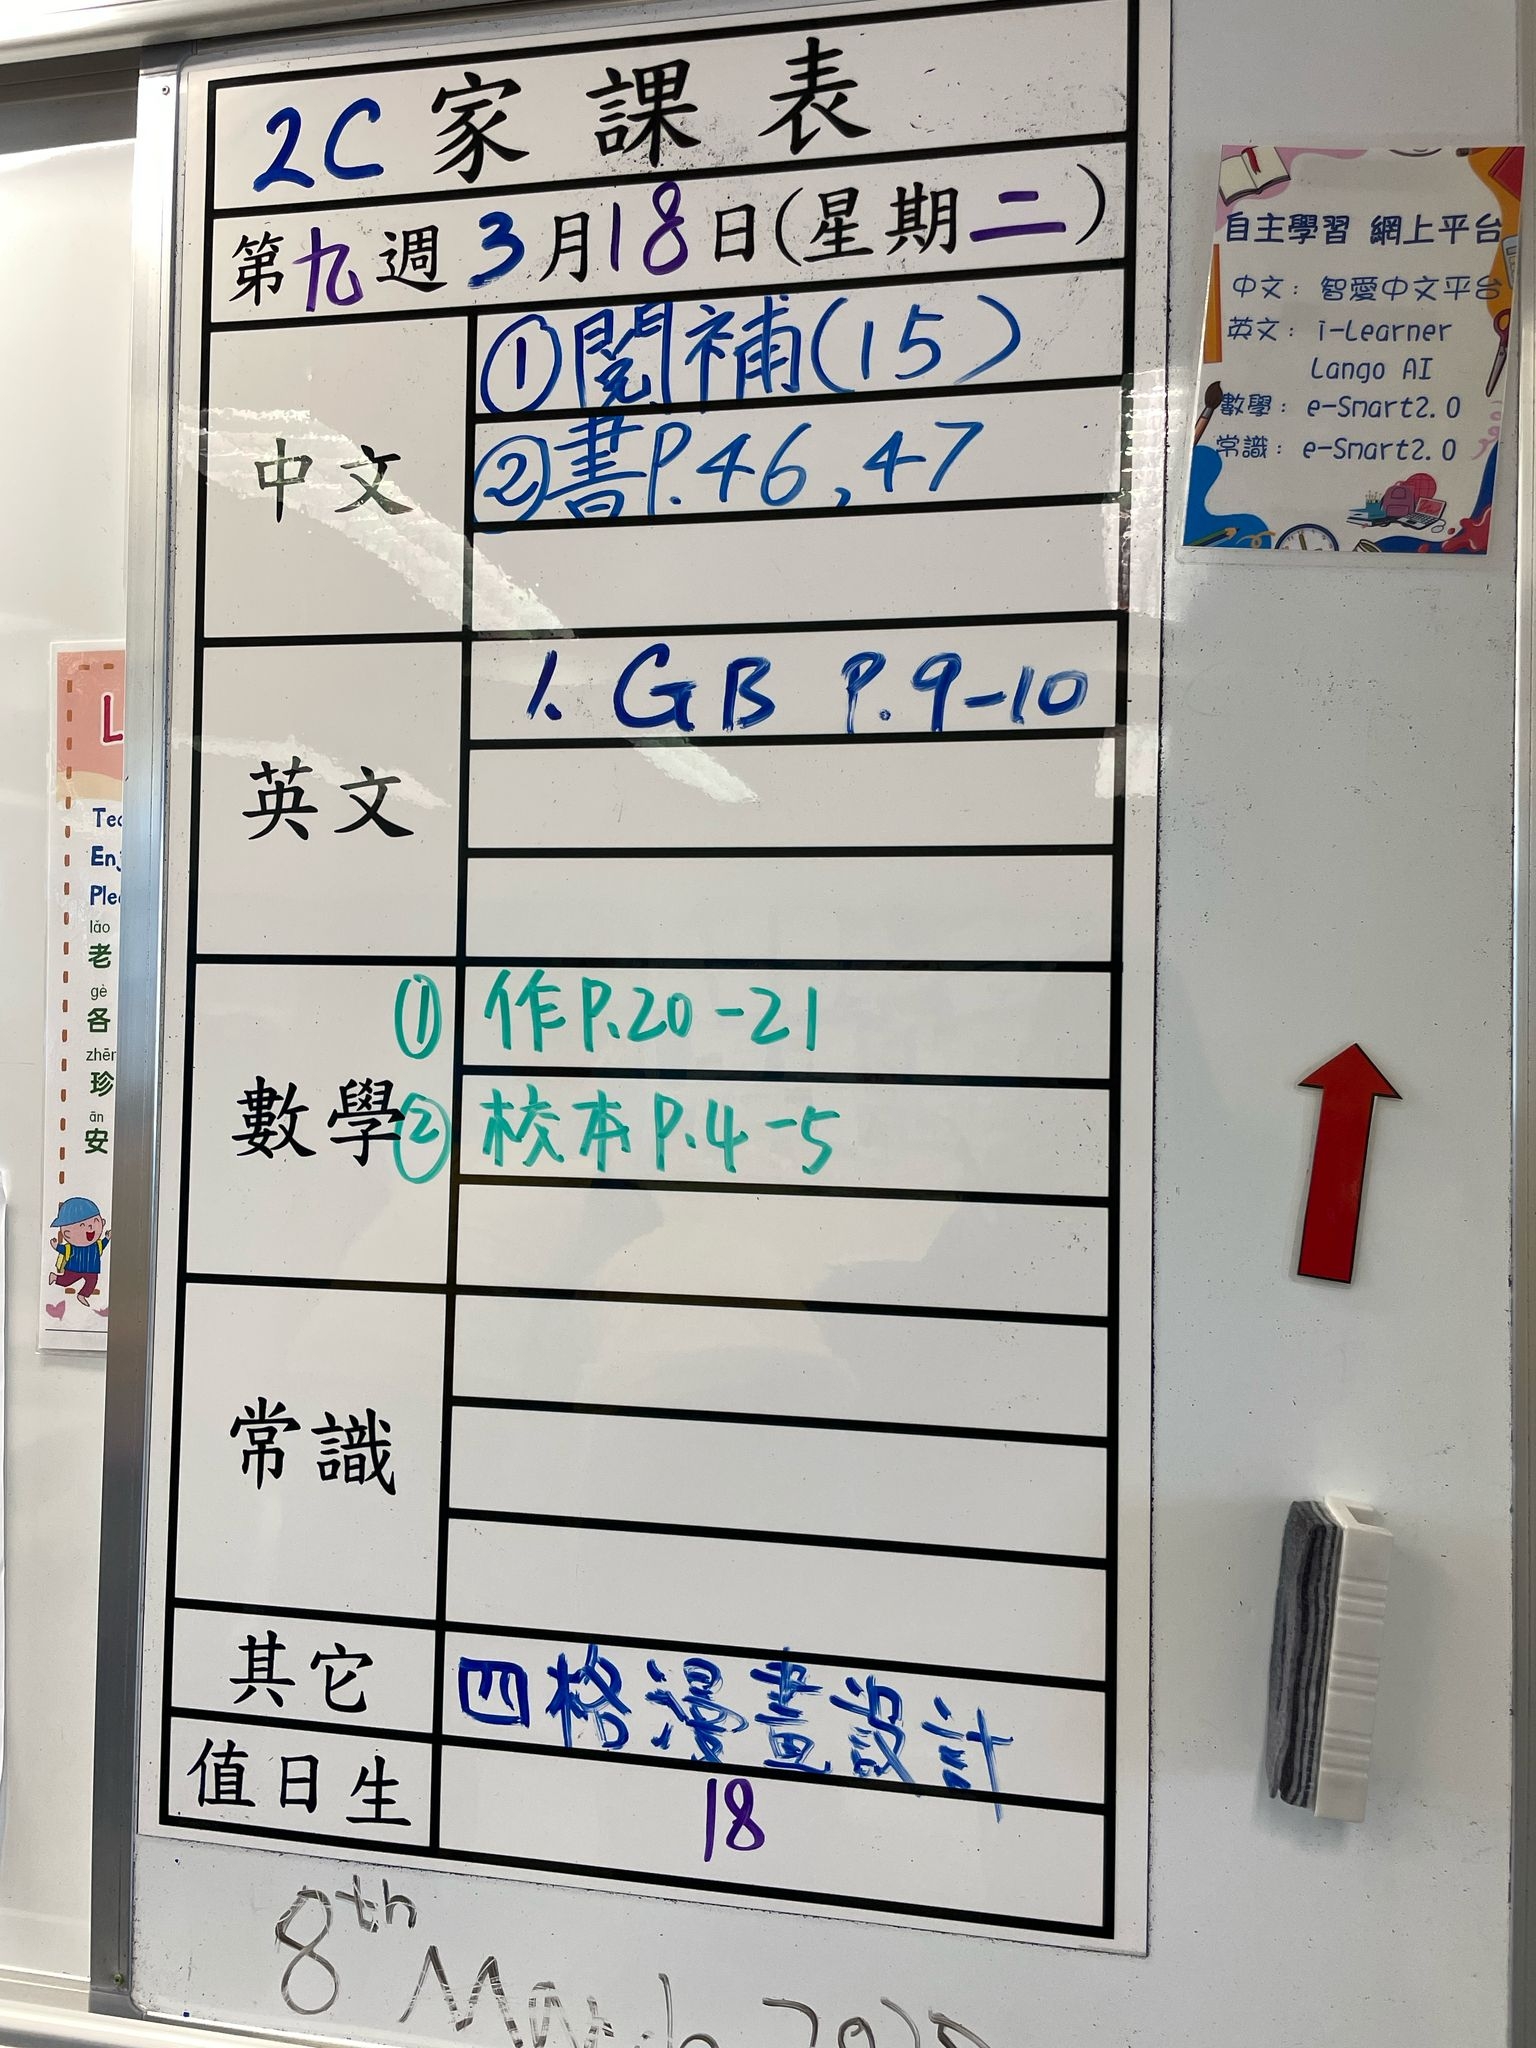 2C 家課表
第九週 3月18日(星期二)
中文
①閱補(15)
②書P.46,47
英文
1. GB P.9-10
數學
① 作P.20-21
② 校本P.4-5
常識
其它
四格漫畫設計
值日生
18
8th March
自主學習 網上平台
中文: 智愛中文平台
英文: i-Learner
Lango AI
數學: e-Smart2.0
常識: e-Smart2.0
L
lǎo
老
gè
各
zhēn
珍
ān
安